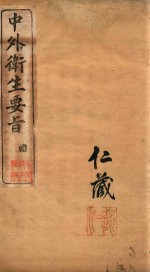 中外衛生要旨
仁藏